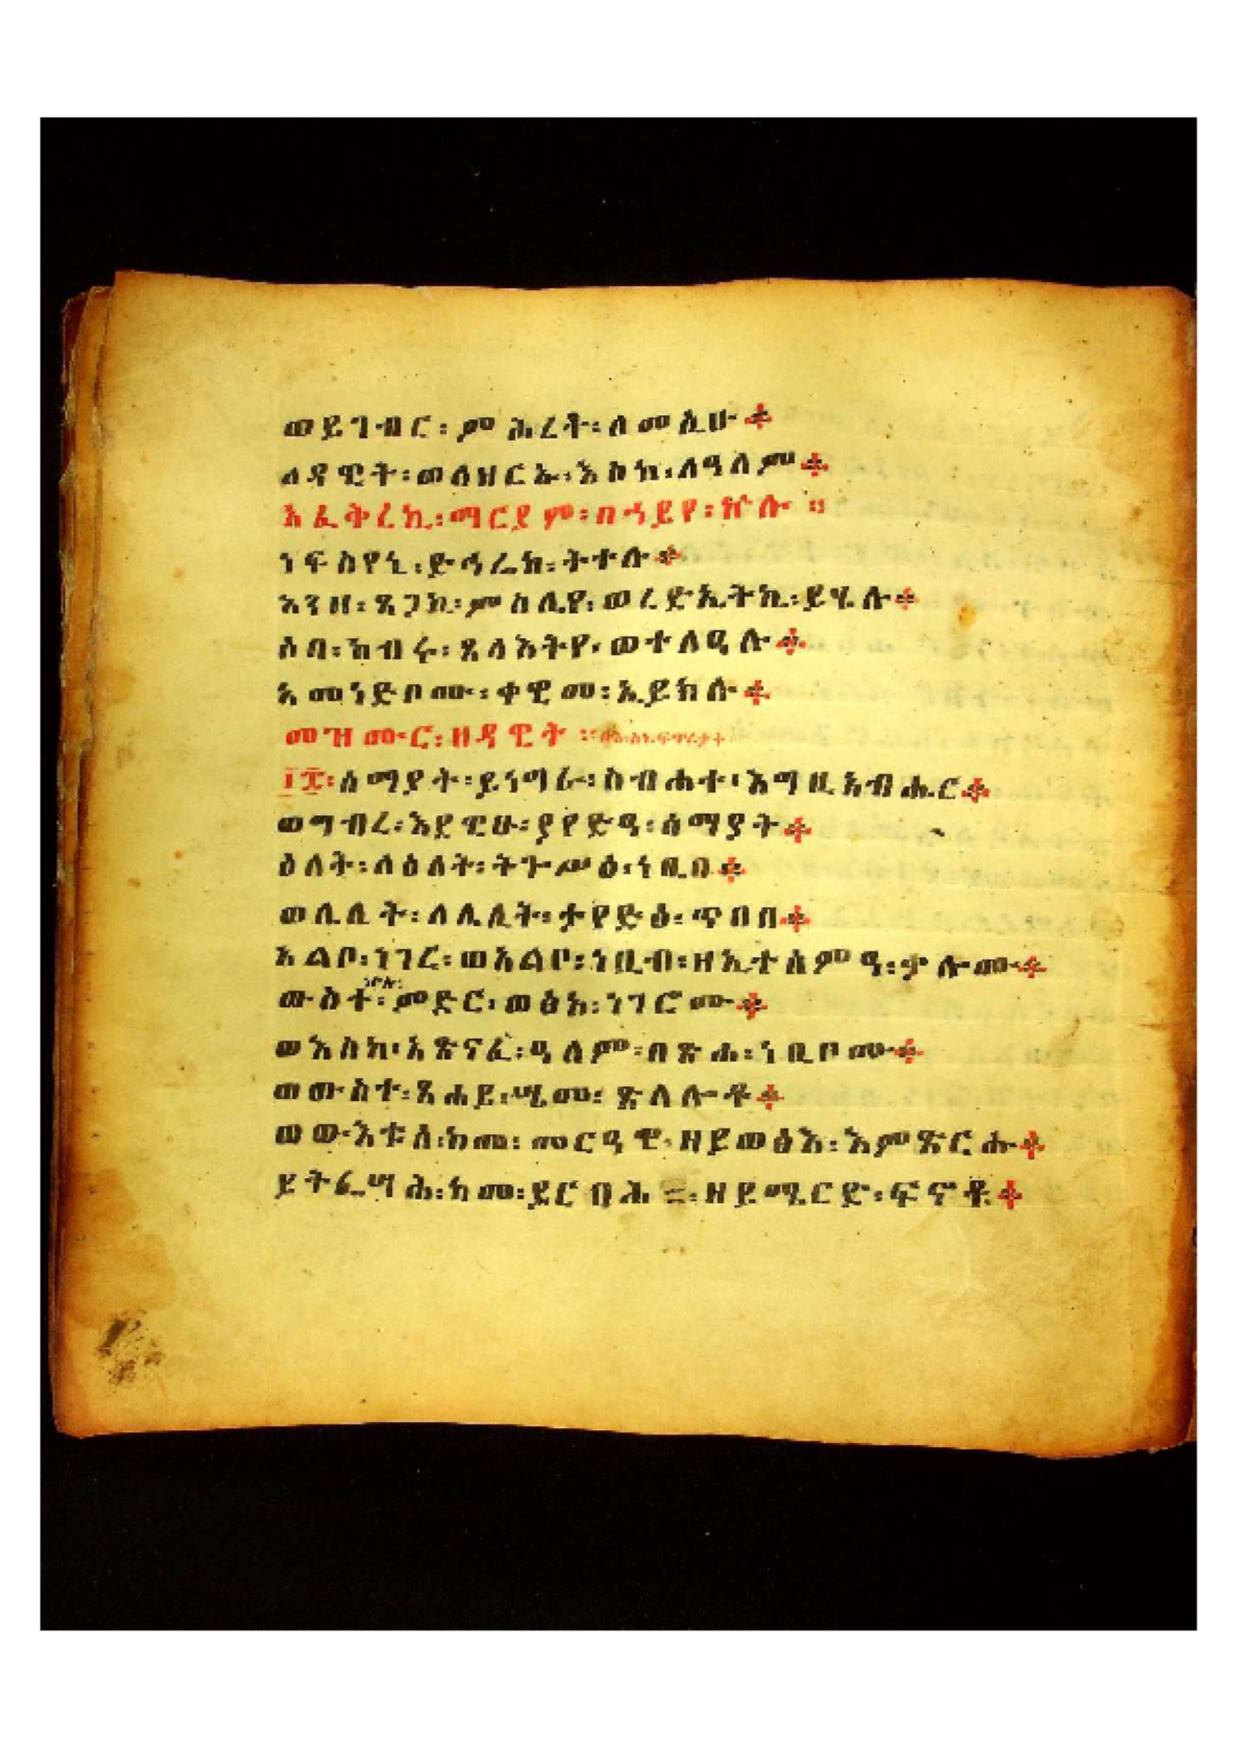 ወይገብር፡ምሕረት፡ለመሲሁ፨
ለዳዊት፡ወለዘርኡ፡እስከ፡ለዓለም፨
አፈቅረኪ፡ማርያም፡በኀይየ፡ኵሉ።
ነፍስየኒ፡ድኅሬኪ፡ትተሉ፨
እንዘ፡ጸጋኪ፡ምስሌየ፡ወረድኤትኪ፡ይሄሉ፨
ሶበ፡ኀብሩ፡ጸላእትየ፡ወተለዓሉ፨
እመንድቦሙ፡ቀዊመ፡ኢይክሉ፨
መዝሙር፡ዘዳዊት።
፲፰፡ሰማያት፡ይነግራ፡ስብሐተ፡እግዚአብሔር፨
ወግብረ፡እደዊሁ፡ያየድዓ፡ሰማያት፨
ዕለት፡ለዕለት፡ትጐሥዕ፡ነቢበ፨
ወሌሊት፡ለሌሊት፡ታየድዕ፡ጥበበ፨
አልቦ፡ነገረ፡ወአልቦ፡ነቢብ፡ዘኢተሰምዓ፡ቃሎሙ፨
ውስተ፡ኵሉ፡ምድር፡ወፅአ፡ነገሮሙ፨
ወእስከ፡አጽናፈ፡ዓለም፡በጽሐ፡ነቢቦሙ፨
ወውስተ፡ፀሐይ፡ሤመ፡ጽላሎቶ፨
ወውእቱሰ፡ከመ፡መርዓዊ፡ዘይወፅእ፡እምጽርሑ፨
ይትፌሣሕ፡ከመ፡ያርብሕ፡ዘይሜርድ፡ፍኖቶ፨